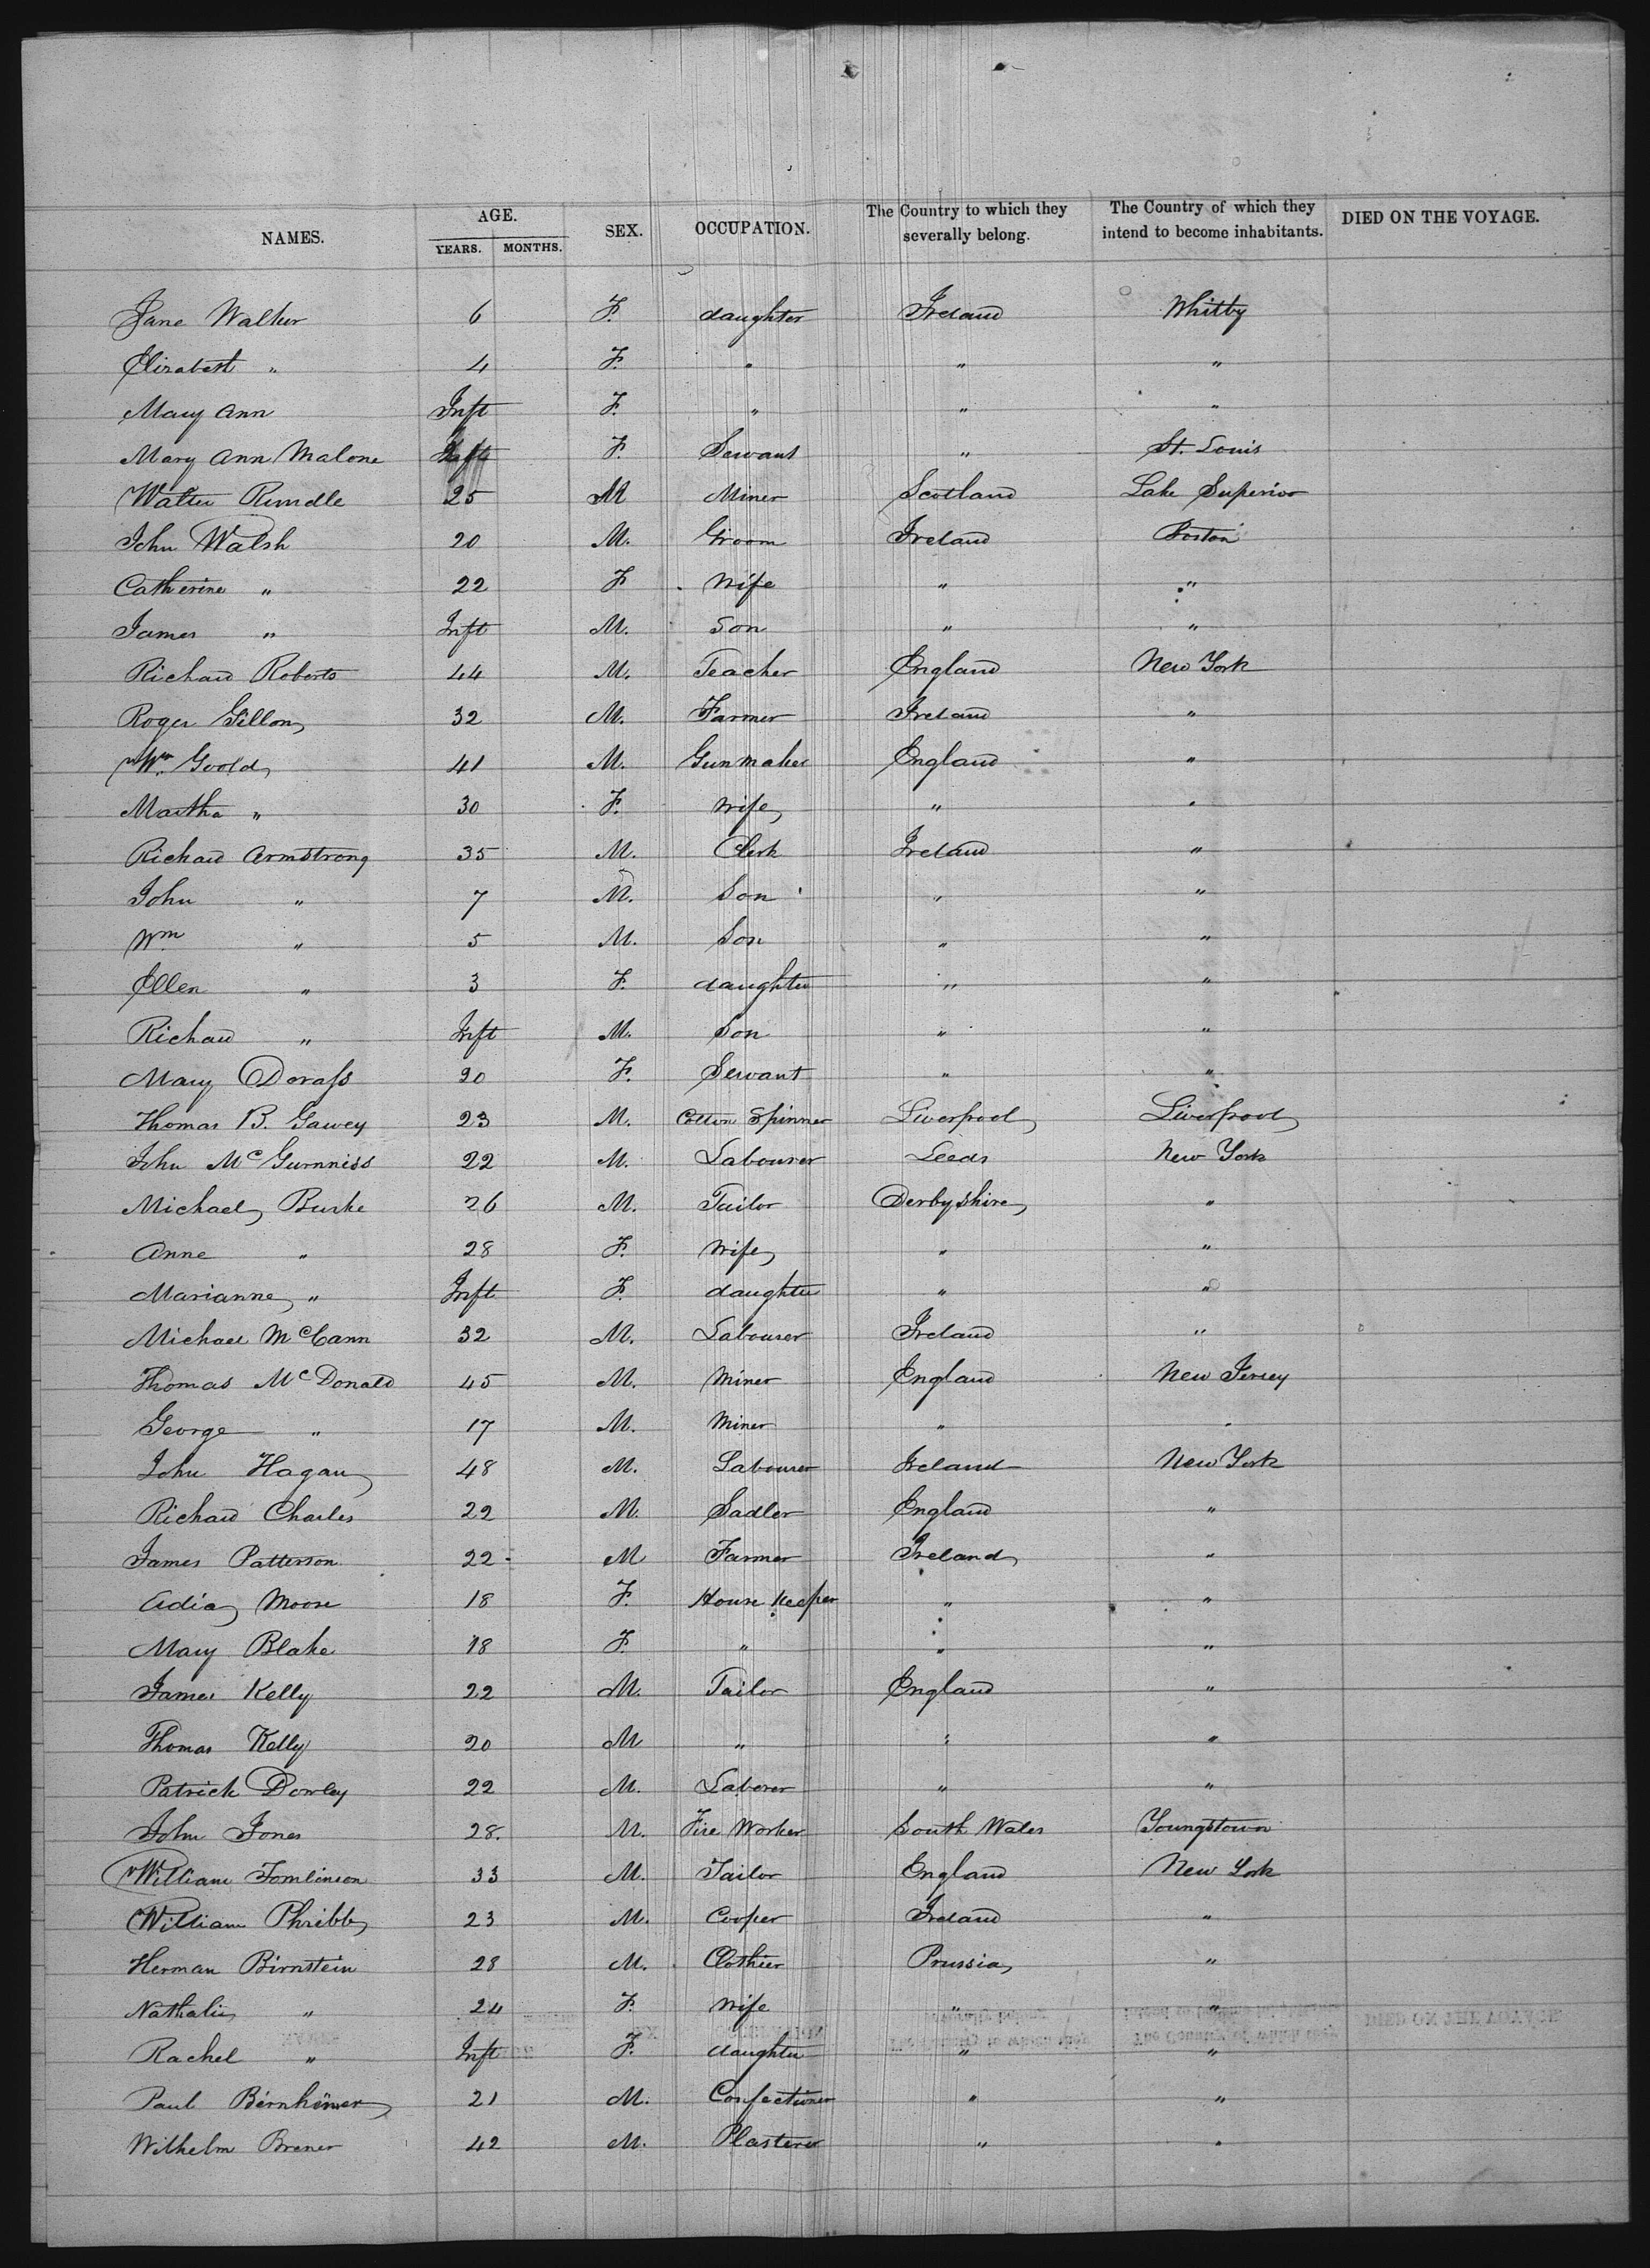 NAMES. AGE. YEARS. MONTHS. SEX. OCCUPATION. The Country to which they severally belong. The Country of which they intend to become inhabitants. DIED ON THE VOYAGE.
Jane Walker 6 F. daughter Ireland Whitby
Elizabeth " 4 F. " " "
Mary Ann Inft F. " " "
Mary Ann Malone F. Servant " St. Louis
Walter Rundle 25 M Miner Scotland Lake Superior
John Walsh 20 M. Groom Ireland Boston
Catherine " 22 F Wife " "
James " Inft M. Son " "
Richard Roberts 44 M. Teacher England New York
Roger Gillon 32 M. Farmer Ireland "
Wm. Goold 41 M. Gunmaker England "
Martha " 30 F. Wife " "
Richard Armstrong 35 M. Clerk Ireland "
John " 7 M. Son " "
Wm " 5 M. Son " "
Ellen " 3 F. daughter " "
Richard " Inft M. Son " "
Mary Dorass 20 F. Servant " "
Thomas B. Gawey 23 M. Cotton Spinner Liverpool Liverpool
John McGurnniss 22 M. Labourer Leeds New York
Michael Burke 26 M. Tailor Derbyshire "
Anne " 28 F. Wife " "
Marianne " Inft F. daughter " "
Michael McCann 32 M. Labourer Ireland "
Thomas McDonald 45 M. Miner England New Jersey
George " 17 M. Miner " "
John Hagan 48 M. Labourer Ireland New York
Richard Charles 22 M. Sadler England "
James Patterson 22 M Farmer Ireland "
Moore 18 F. House Keeper " "
Mary Blake 18 F. " " "
James Kelly 22 M. Tailor England "
Thomas Kelly 20 M " " "
Patrick Dowley 22 M. Laborer " "
John Jones 28. M. Fire Worker South Wales Youngstown
William Tomlinson 33 M. Tailor England New York
William Phribb 23 M. Cooper Ireland "
Herman Birnstein 28 M. Clothier Prussia "
Nathalie " 24 F. Wife " "
Rachel " Inft F. daughter " "
Paul 21 M. Confectioner " "
Wilhelm Brener 42 M. Plasterer " "